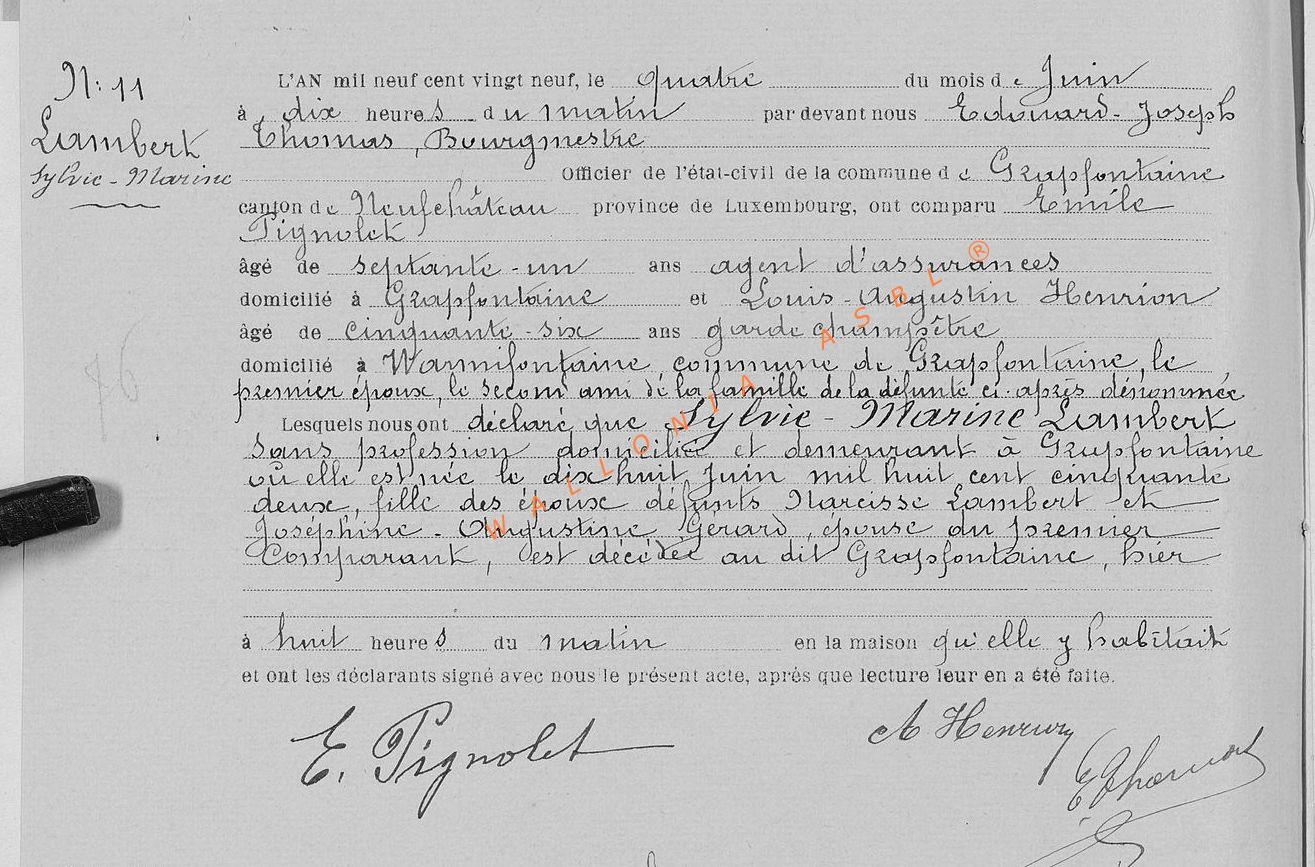 N: 11
Lambert
Sylvie-Marine
L'AN mil neuf cent vingt neuf, le quatre du mois de Juin
à dix heures du matin par devant nous Edouard-Joseph
Thomas, Bourgmestre
Officier de l'état-civil de la commune de Grapfontaine
canton de Neufchâteau province de Luxembourg, ont comparu Emile
Pignolet
âgé de septante-un ans agent d'assurances
domicilié à Grapfontaine et Louis-Augustin Henrion
âgé de cinquante-six ans garde champêtre
domicilié à Warmifontaine, commune de Grapfontaine, le
premier époux, le second ami de la famille de la défunte ci-après dénommée
Lesquels nous ont déclaré que Sylvie-Marine Lambert
sans profession domiciliée et demeurant à Grapfontaine
où elle est née le dix huit Juin mil huit cent cinquante
deux, fille des époux défunts Narcisse Lambert et
Joséphine-Augustine Gerard, épouse du premier
Comparant, est décédée au dit Grapfontaine, hier
à huit heures du matin en la maison qu'elle y habitait
et ont les déclarants signé avec nous le présent acte, après que lecture leur en a été faite.
E. Pignolet
A Henrion
E Thomas
76
WALLONIA ASBL ®